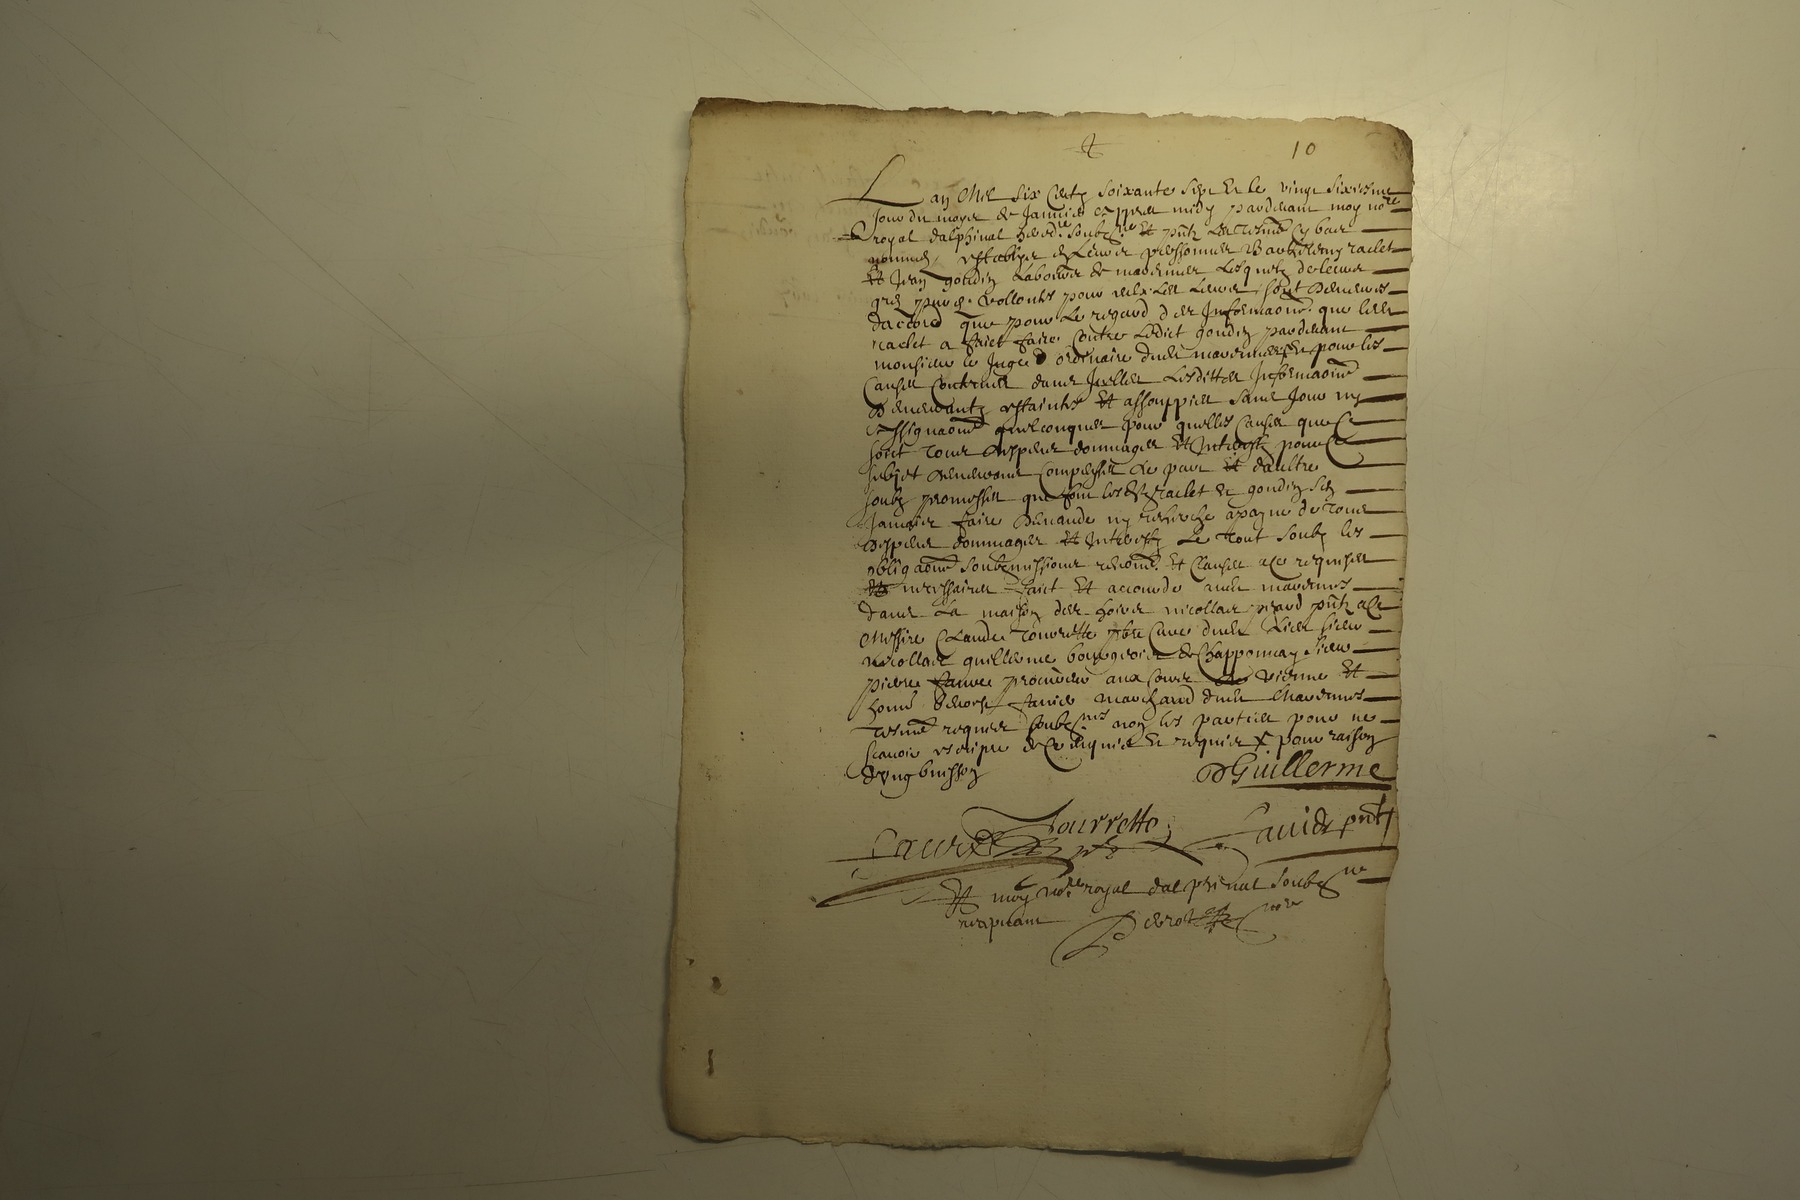 10
L an Mil six centz soixante sept et le vingt sixiesme
Jour du moys de Janvier appres midy pardevant moy no.re
royal dalphinal hered.re soubz.ne et p.ntz les tesm. cy bas
nommes, establys en leurs personnes Barthellemy raclet
Et Jean gondin Laboureur de mavernies Lesquelz de leurs
gres pures vollontes pour eulx Les Leurs sont demeures
daccord que pour Le regard des Informaons que led
raclet a faict faire Contre Ledict gondin pardevant
monsieur le Juge ordinaire dud et pour les
Causes Contenues dans Jcelles Lesdittes Informaons
Demeurantz estaintes Et assouppies sans Jour ny
assignaon quelconques pour quelles Causes que Ce
soit tous despens dommages Et Interestz pour Ce
subjet demeurant Compenses de part Et daultre
soubz promesses que font lesd raclet et gondin
Jamais faire demande ny recherche a payne de tous
despens dommages Et Interestz Le tout soubz les
obligaons soubzmissions renon. Et Clauses a ce requises
Et necessaires faict Et accourde aud mavernies
dans La maison des hoirs nicollas p.ntz a Ce
Messire Claude Tourrette p.bre Cure dud Lieu sieur
Nicollas guillerme bourgeois de Chapponnay sieur
pierre faure procureur aux Cours de vienne Et
hon. favier marchand dud Mavernies
Tesm. requis soubz.nes non les parties pour ne
scavoir escripre de Ce enquis et requis pour raison
d vng buisson
DGuillerme
Tourrette
faure favier p.nt
Et moy no.re royal dalphinal soubz.ne
recepvant